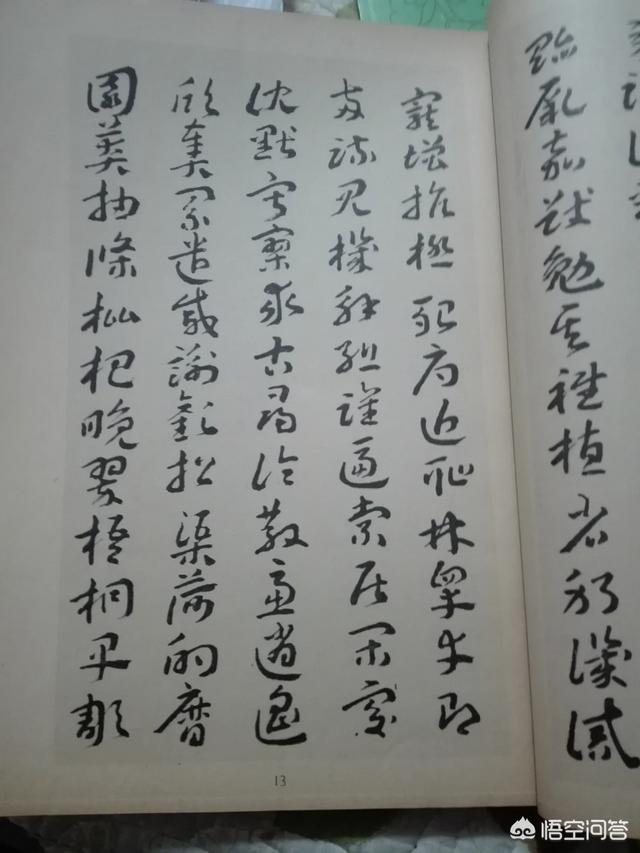 貽厥嘉猷勉其祗植省躬譏誡
寵增抗極殆辱近恥林皋幸即
兩疏見機解組誰逼索居閑處
沈默寂寥求古尋論散慮逍遙
欣奏累遣慼謝歡招渠荷的歷
園莽抽條枇杷晚翠梧桐早彫
13
悟空问答